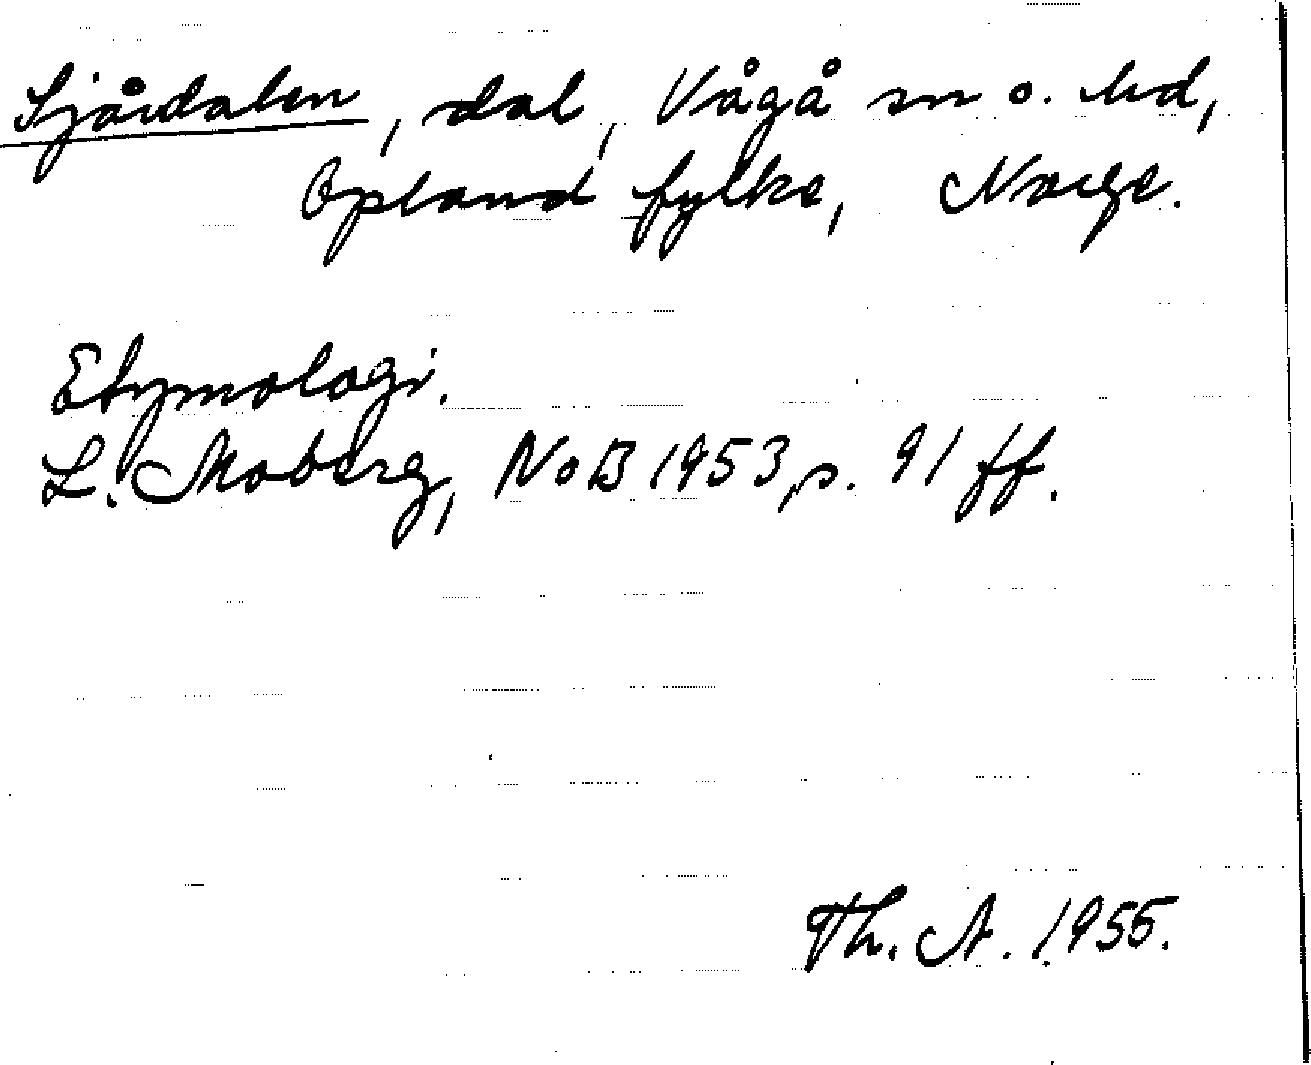 Sjårdalen, dal, Vågå sn o. hd,
Opland fylke, Norge.
Etymologi.
L. Moberg, NoB 1953, s. 91 ff.
Th. A. 1955.